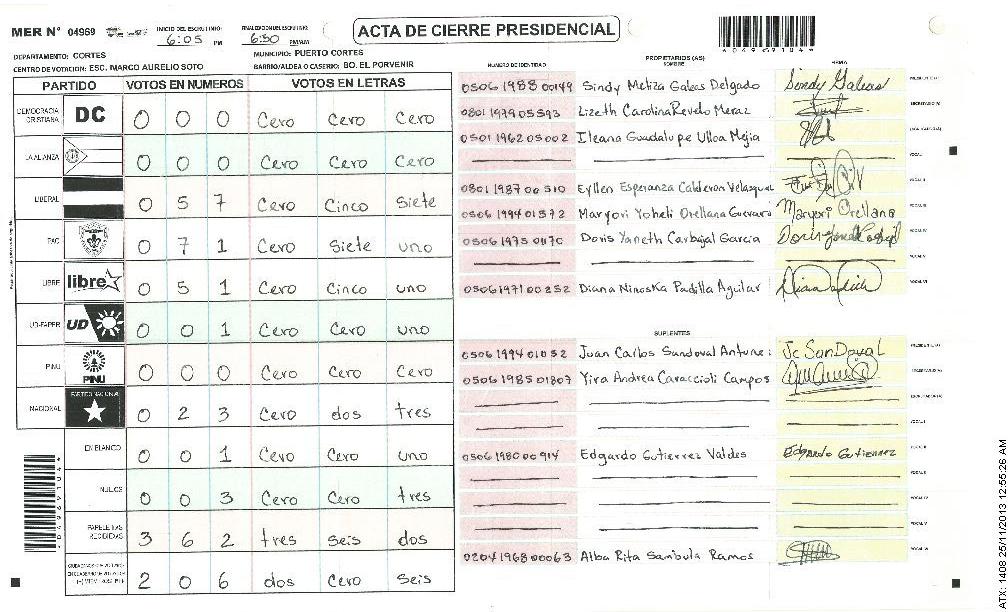 MER Nº 04969 INICIO DEL ESCRUTINIO: 6:05 PM FINALIZACION DEL ESCRUTINIO: 6:50 PM/AM
ACTA DE CIERRE PRESIDENCIAL
DEPARTAMENTO: CORTES MUNICIPIO: PUERTO CORTES
CENTRO DE VOTACION: ESC. MARCO AURELIO SOTO BARRIO/ALDEA O CASERIO: BO. EL PORVENIR
PARTIDO VOTOS EN NUMEROS VOTOS EN LETRAS
DEMOCRACIA CRISTIANA DC 0 0 0 Cero Cero Cero
LA ALIANZA 0 0 0 Cero Cero Cero
LIBERAL 0 5 7 Cero Cinco Siete
PAC 0 7 1 Cero Siete uno
LIBRE libre 0 5 1 Cero Cinco uno
UD-FAPER UD 0 0 1 Cero Cero uno
PINU PINU 0 0 0 Cero Cero Cero
NACIONAL PARTIDO NACIONAL 0 2 3 Cero dos tres
EN BLANCO 0 0 1 Cero Cero uno
NULOS 0 0 3 Cero Cero tres
PAPELETAS RECIBIDAS 3 6 2 tres seis dos
2 0 6 dos Cero seis
PROPIETARIOS (AS)
NUMERO DE IDENTIDAD NOMBRE FIRMA
0506 1988 00149 Sindy Meliza Galeas Delgado Sindy Galeas
0801 1979 05593 Lizeth Carolina Revelo Meraz
0501 1962 05002 Ileana Guadalupe Ulloa Mejia
0801 1987 06510 Eyllen Esperanza Calderon Velasquez
0506 1994 01572 Maryori Yoheli Orellana Guevara Maryori Orellana
0506 1975 01170 Doris Yaneth Carbajal Garcia
0506 1971 00252 Diana Ninoska Padilla Aguilar
SUPLENTES
0506 1994 01052 Juan Carlos Sandoval Jc SanDoval
0506 1985 01807 Yira Andrea Caraccioli Campos
0506 1980 00914 Edgardo Gutierrez Valdes Edgardo Gutierrez
0204 1968 00063 Alba Rita Sambula Ramos
ATX: 1408 25/11/2013 12:55:26 AM